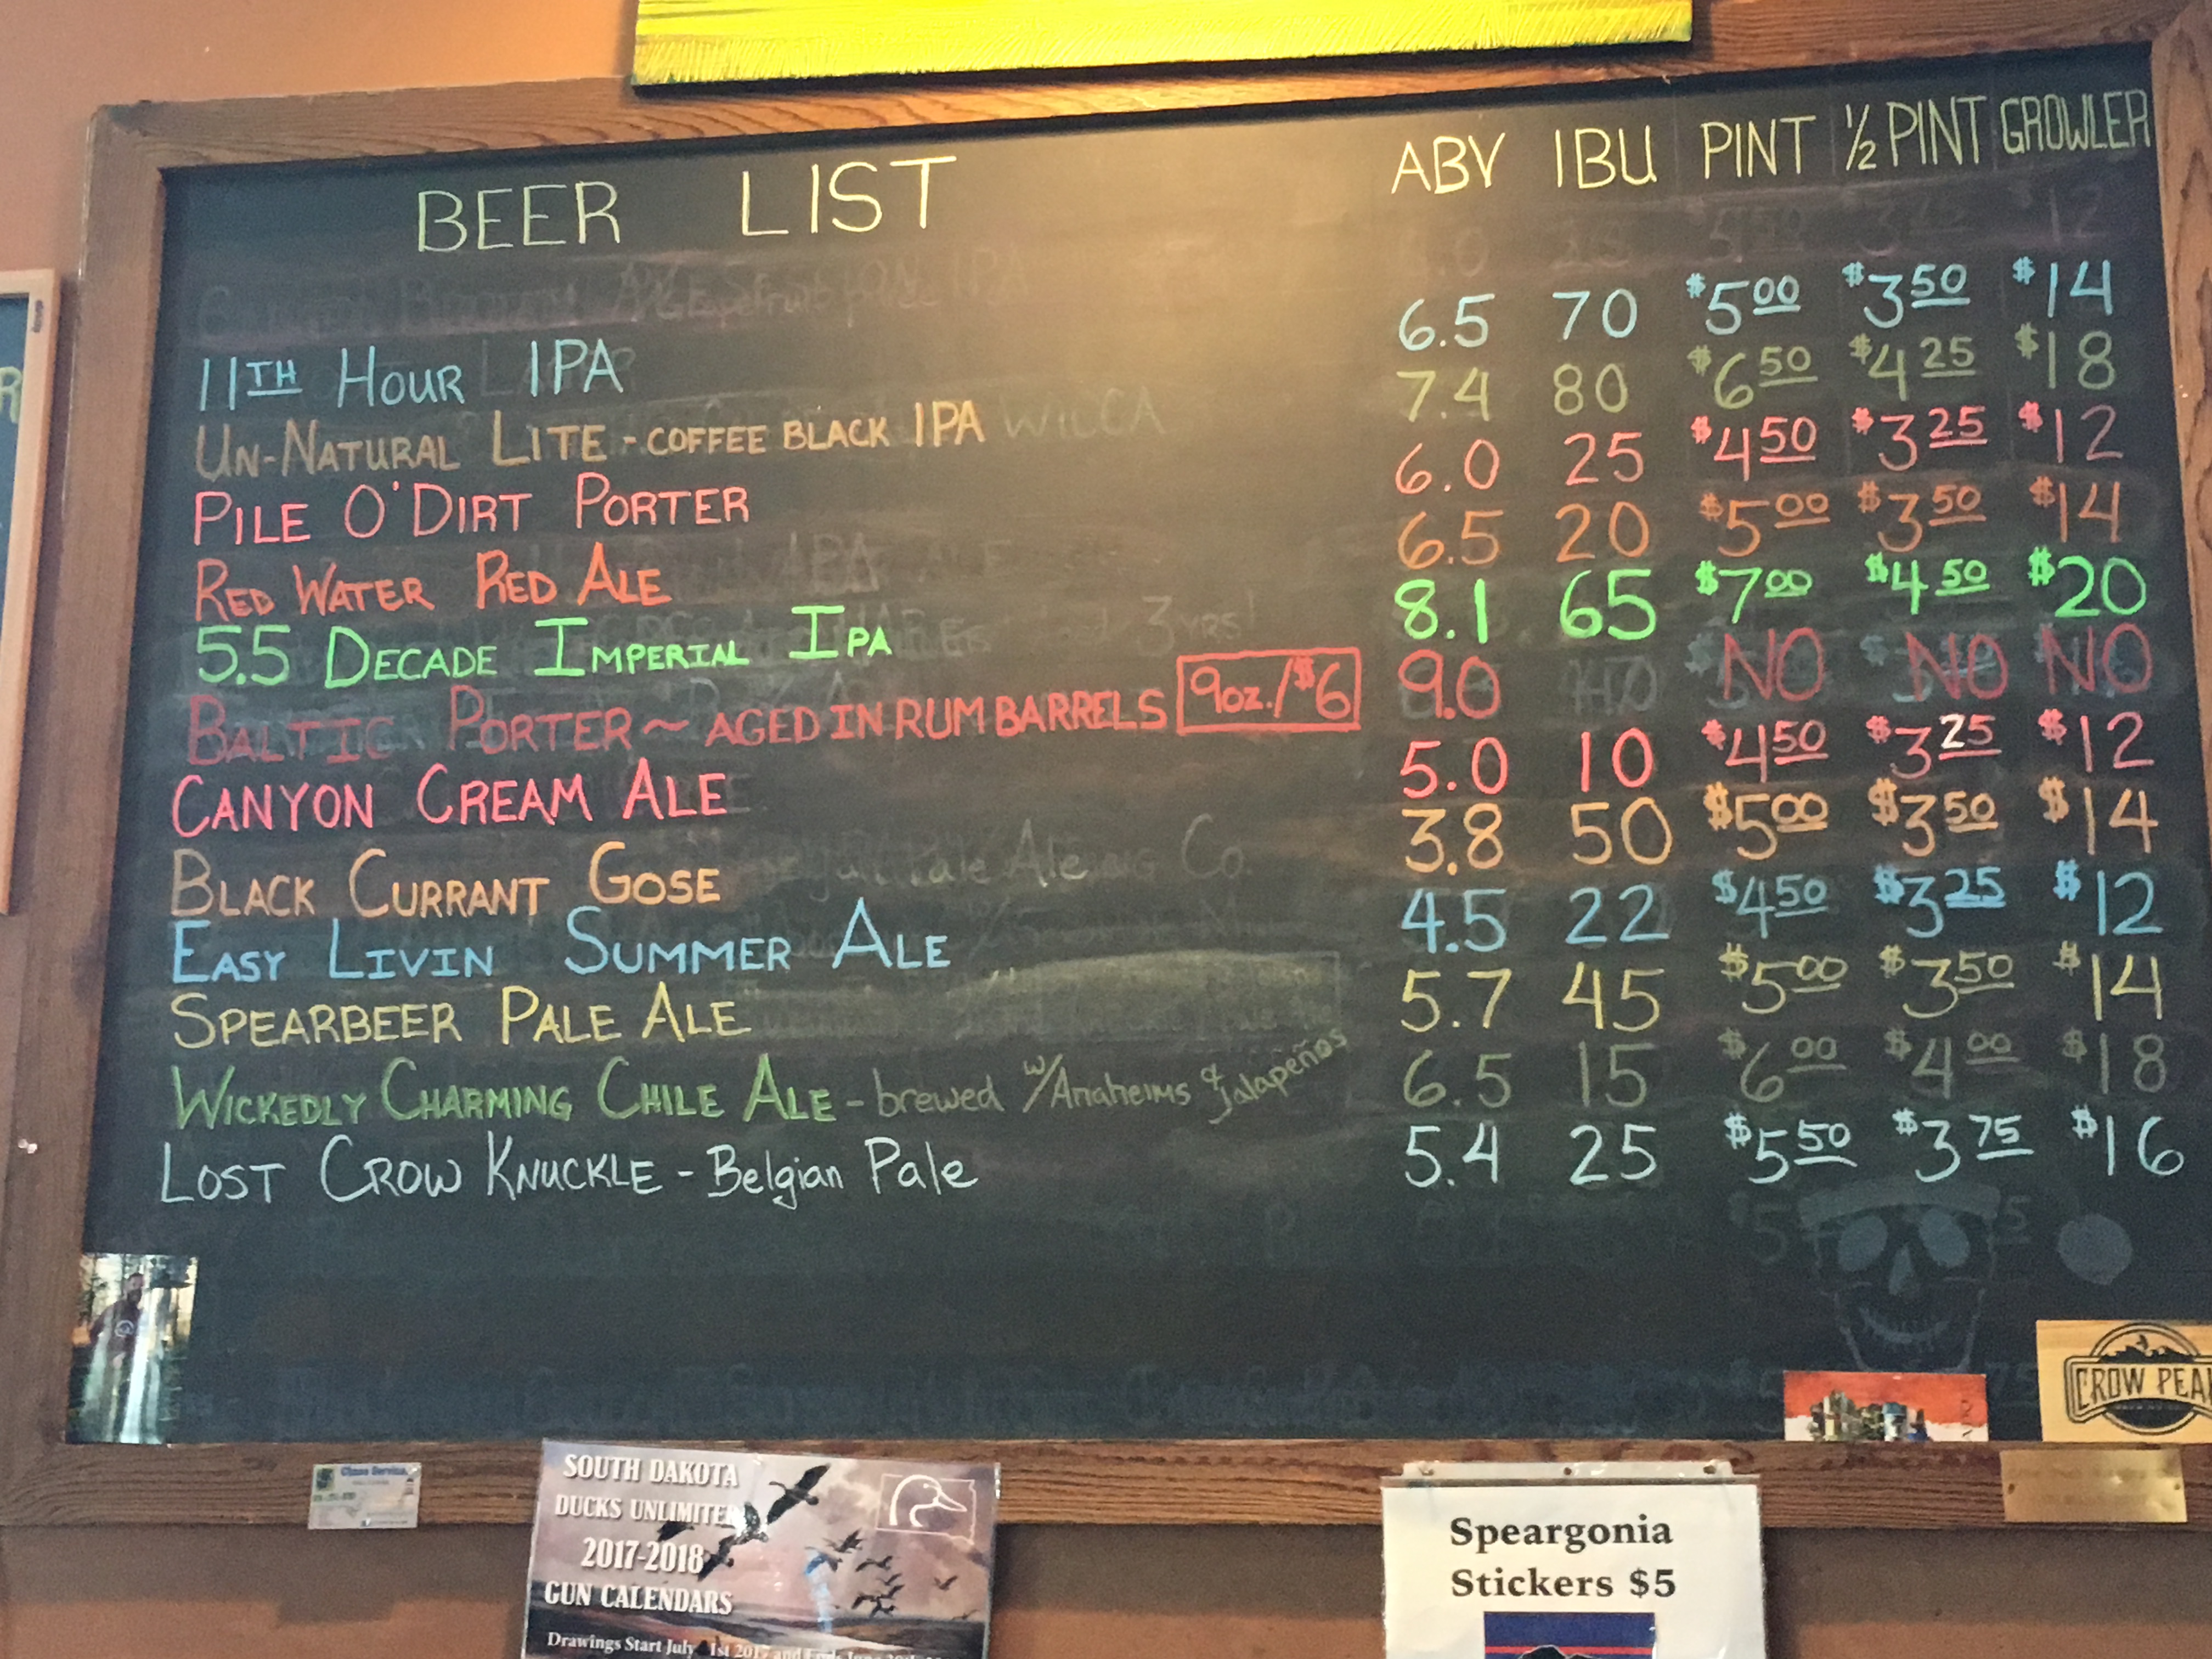 BEER LIST ABV IBU PINT ½ PINT GROWLER
11TH HOUR IPA 6.5 70 $5.00 $3.50 $14
UN-NATURAL LITE - COFFEE BLACK IPA 7.4 80 $6.50 $4.25 $18
PILE O'DIRT PORTER 6.0 25 $4.50 $3.25 $12
RED WATER RED ALE 6.5 20 $5.00 $3.50 $14
5.5 DECADE IMPERIAL IPA 8.1 65 $7.00 $4.50 $20
BALTIC PORTER ~ AGED IN RUM BARRELS 9oz./$6 9.0 NO NO NO
CANYON CREAM ALE 5.0 10 $4.50 $3.25 $12
BLACK CURRANT GOSE 3.8 50 $5.00 $3.50 $14
EASY LIVIN SUMMER ALE 4.5 22 $4.50 $3.25 $12
SPEARBEER PALE ALE 5.7 45 $5.00 $3.50 $14
WICKEDLY CHARMING CHILE ALE - brewed w/Anaheims & Jalapeños 6.5 15 $6.00 $4.00 $18
LOST CROW KNUCKLE - Belgian Pale 5.4 25 $5.50 $3.75 $16
CROW PEA
SOUTH DAKOTA
DUCKS UNLIMITED
2017-2018
GUN CALENDARS
Drawings Start July 1st 2017 and
Speargonia
Stickers $5